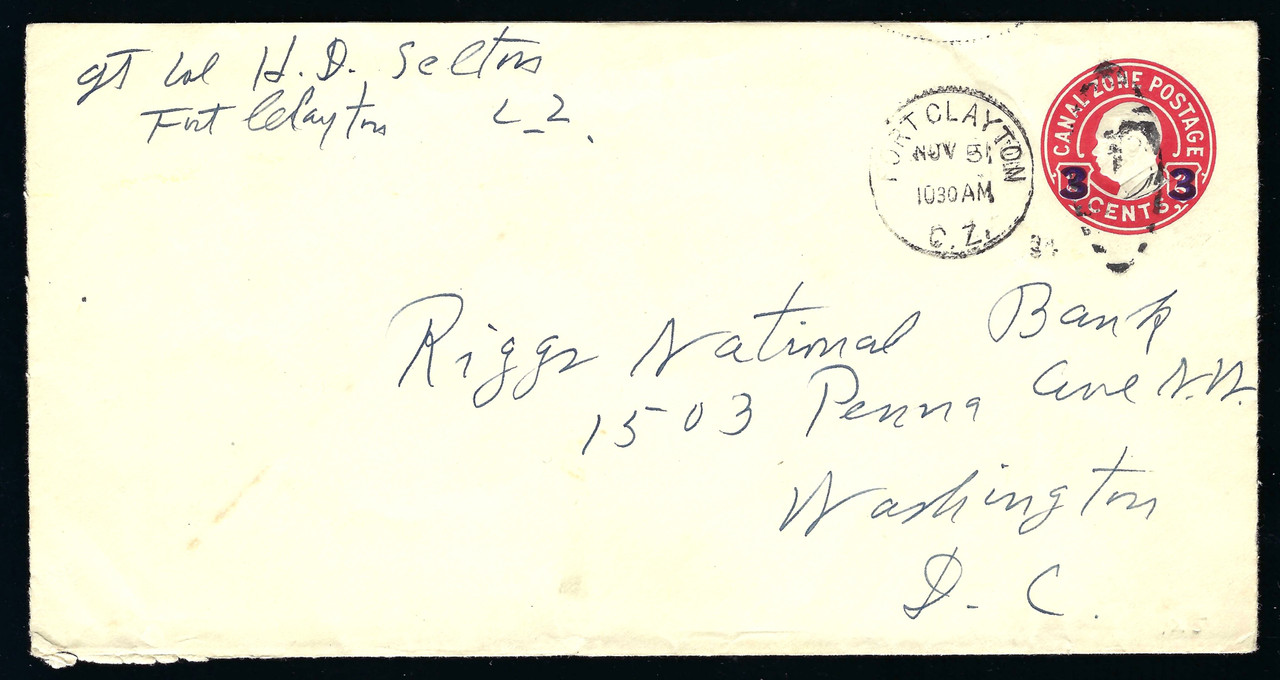 Lt Col H. D. Selton
Fort Clayton C_Z.
FORT CLAYTON
NOV 5
1030 AM
C. Z.
CANAL ZONE POSTAGE
3 3
CENTS
Riggs National Bank
1503 Penna Ave N.W.
Washington
D. C.